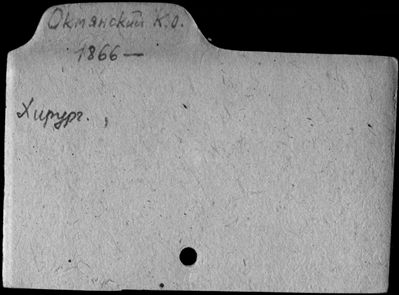 Окмянский К.О.
1866 —
Хирург. ,